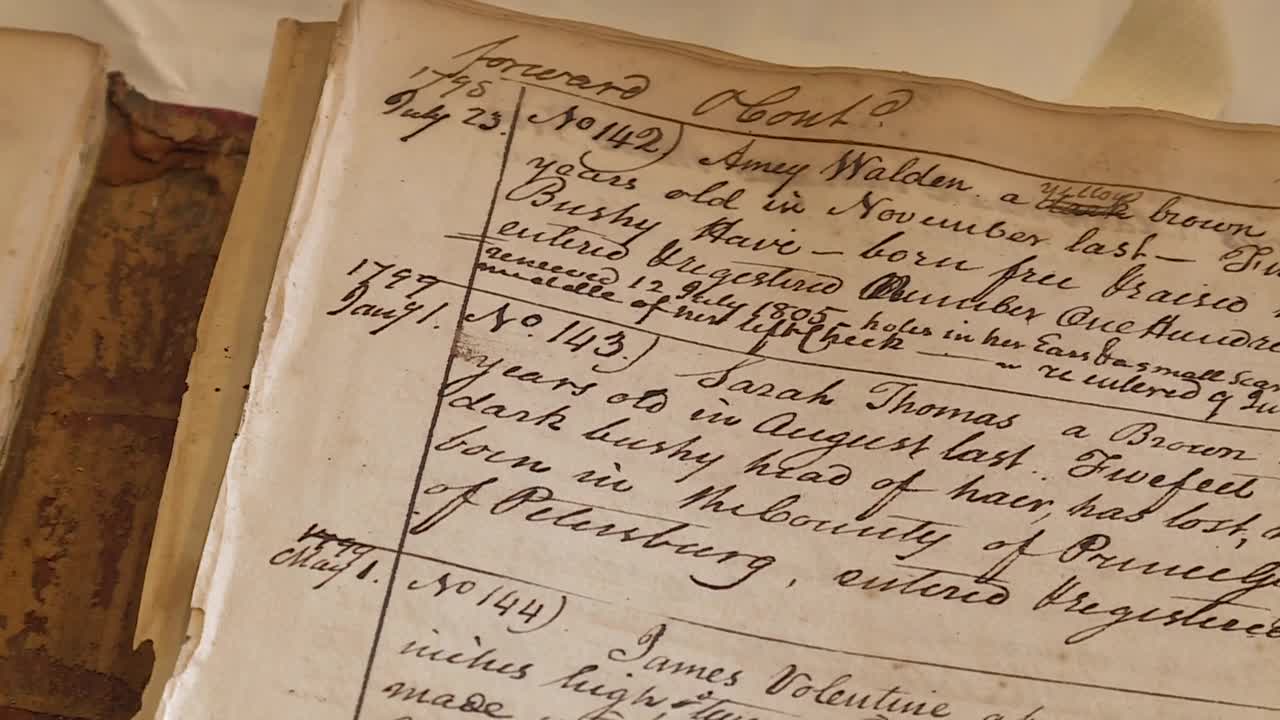 forward Contd.
1798
July 23. No 142) Amey Walden a yellow brown
years old in November last — Five
Bushy Hair — born free & raised
entered & regestired Number One Hundre
renewed 12 July 1805 holes in her Ears & a small scar
middle of her left Cheek — reentered 9
1799
Jany 1. No 143.) Sarah Thomas a Brown
years old in August last. Five feet
dark bushy head of hair, has lost,
born in the County of Prince G
of Petersburg, entered & registered
1799
May 1. No 144) James Valentine
inches high,
made